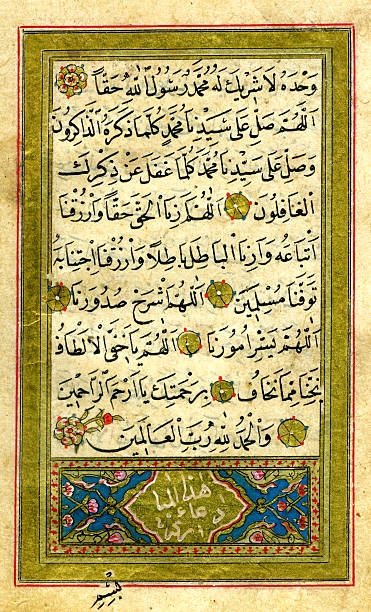 وَحْدَهُ لَا شَرِيكَ لَهُ مُحَمَّدٌ رَسُولُ اللّٰهِ حَقًّا
اَللّٰهُمَّ صَلِّ عَلٰى سَيِّدِنَا مُحَمَّدٍ كُلَّمَا ذَكَرَهُ الذَّاكِرُونَ
وَصَلِّ عَلٰى سَيِّدِنَا مُحَمَّدٍ كُلَّمَا غَفَلَ عَنْ ذِكْرِكَ
الْغَافِلُونَ اَللّٰهُمَّ اَرِنَا الْحَقَّ حَقًّا وَارْزُقْنَا
اتِّبَاعَهُ وَاَرِنَا الْبَاطِلَ بَاطِلًا وَارْزُقْنَا اجْتِنَابَهُ
تَوَفَّنَا مُسْلِمِينَ اَللّٰهُمَّ اشْرَحْ صُدُورَنَا
اَللّٰهُمَّ يَسِّرْ اُمُورَنَا اَللّٰهُمَّ يَا خَفِيَّ الْاَلْطَافِ
نَجِّنَا مِمَّا نَخَافُ بِرَحْمَتِكَ يَا اَرْحَمَ الرَّاحِمِينَ
وَالْحَمْدُ لِلّٰهِ رَبِّ الْعَالَمِينَ
هذا
دعاء
بسم